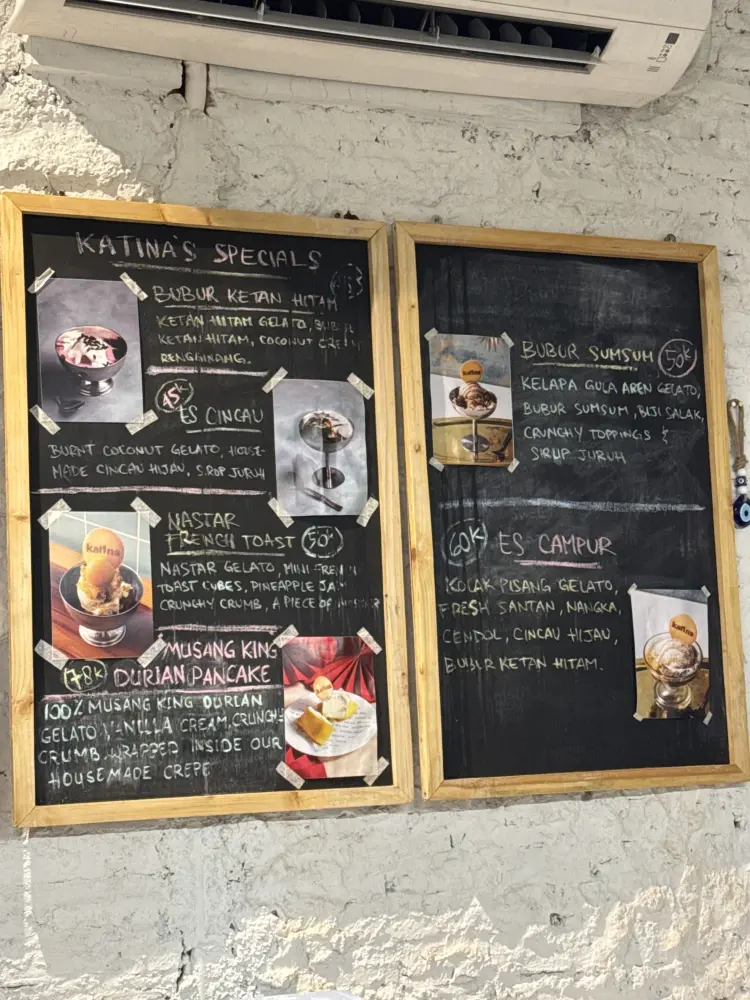 KATINA'S SPECIALS
BUBUR KETAN HITAM
KETAN HITAM GELATO,
KETAN HITAM, COCONUT
RENGGINANG.
45K
ES CINCAU
BURNT COCONUT GELATO, HOUSE-
MADE CINCAU HIJAU, SIRUP JURUH
NASTAR
FRENCH TOAST 50K
NASTAR GELATO, MINI FRENCH
TOAST CUBES, PINEAPPLE JAM
CRUNCHY CRUMB, A PIECE OF NASTAR
katina
MUSANG KING
178K DURIAN PANCAKE
100% MUSANG KING DURIAN
GELATO, VANILLA CREAM, CRUNCHY
CRUMB WRAPPED INSIDE OUR
HOUSEMADE CREPE
BUBUR SUMSUM 50K
KELAPA GULA AREN GELATO,
BUBUR SUMSUM, BIJI SALAK,
CRUNCHY TOPPINGS &
SIRUP JURUH
katina
60K ES CAMPUR
KOLAK PISANG GELATO,
FRESH SANTAN, NANGKA,
CENDOL, CINCAU HIJAU,
BUBUR KETAN HITAM.
katina